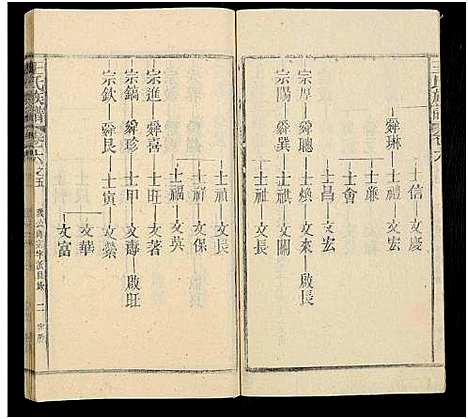 王氏族譜
卷六
舜琳
士信
文慶
士禮
文宏
士廉
士會
宗厚
舜聰
士煥
文來
啟長
士昌
文宏
宗陽
舜巽
士
文關
士祉
文長
士禎
文長
士福
文保
宗進
舜喜
士旺
文著
士祿
文英
宗鎬
舜珍
士甲
文壽
啟旺
宗欽
舜艮
士寅
文縈
文華
文富
王氏族譜
卷六之五
二